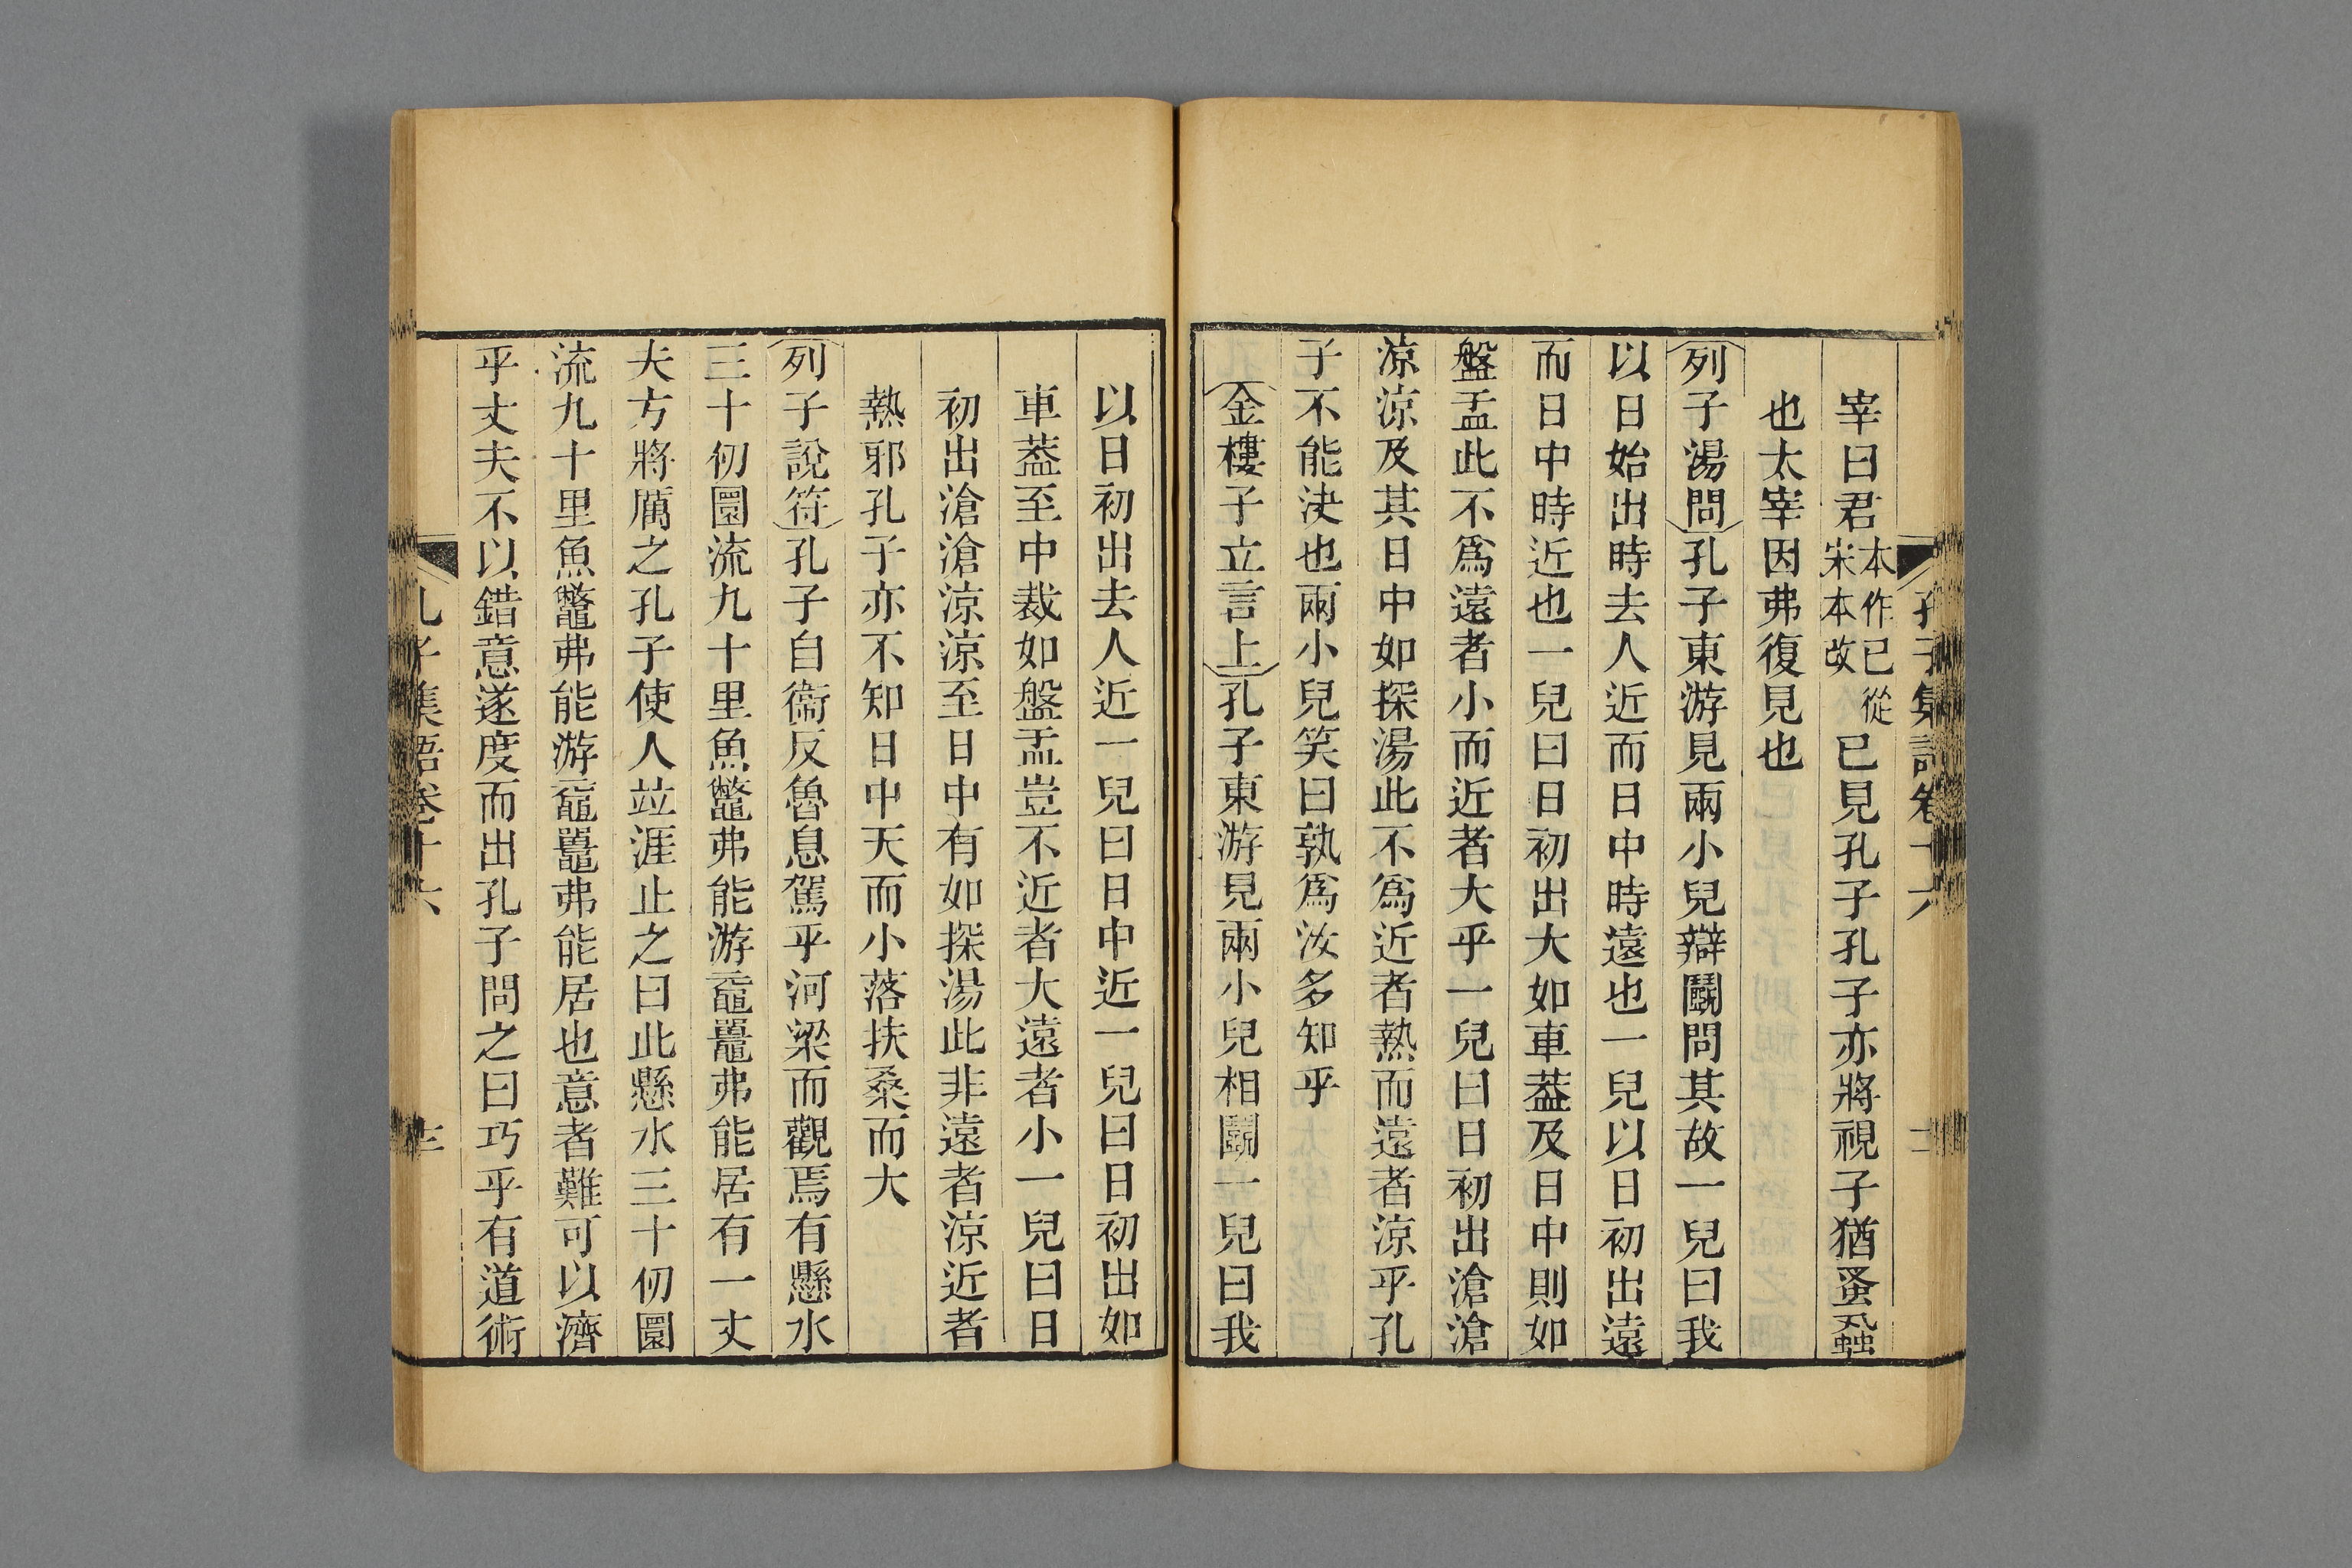 宰曰君本作已從宋本改已見孔子孔子亦將視子猶蚤蝨
也太宰因弗復見也
列子湯問孔子東游見兩小兒辯鬭問其故一兒曰我
以日始出時去人近而日中時遠也一兒以日初出遠
而日中時近也一兒曰日初出大如車葢及日中則如
盤盂此不爲遠者小而近者大乎一兒曰日初出滄滄
涼涼及其日中如探湯此不爲近者熱而遠者涼乎孔
子不能決也兩小兒笑曰孰爲汝多知乎
金樓子立言上孔子東游見兩小兒相鬭一兒曰我
以日初出去人近一兒曰日中近一兒曰日初出如
車葢至中裁如盤盂豈不近者大遠者小一兒曰日
初出滄滄涼涼至日中有如探湯此非遠者涼近者
熱邪孔子亦不知日中天而小落扶桑而大
列子說符孔子自衞反魯息駕乎河梁而觀焉有懸水
三十仞圜流九十里魚鼈弗能游黿鼉弗能居有一丈
夫方將厲之孔子使人竝涯止之曰此懸水三十仞圜
流九十里魚鼈弗能游黿鼉弗能居也意者難可以濟
乎丈夫不以錯意遂度而出孔子問之曰巧乎有道術
孔子集語卷十六